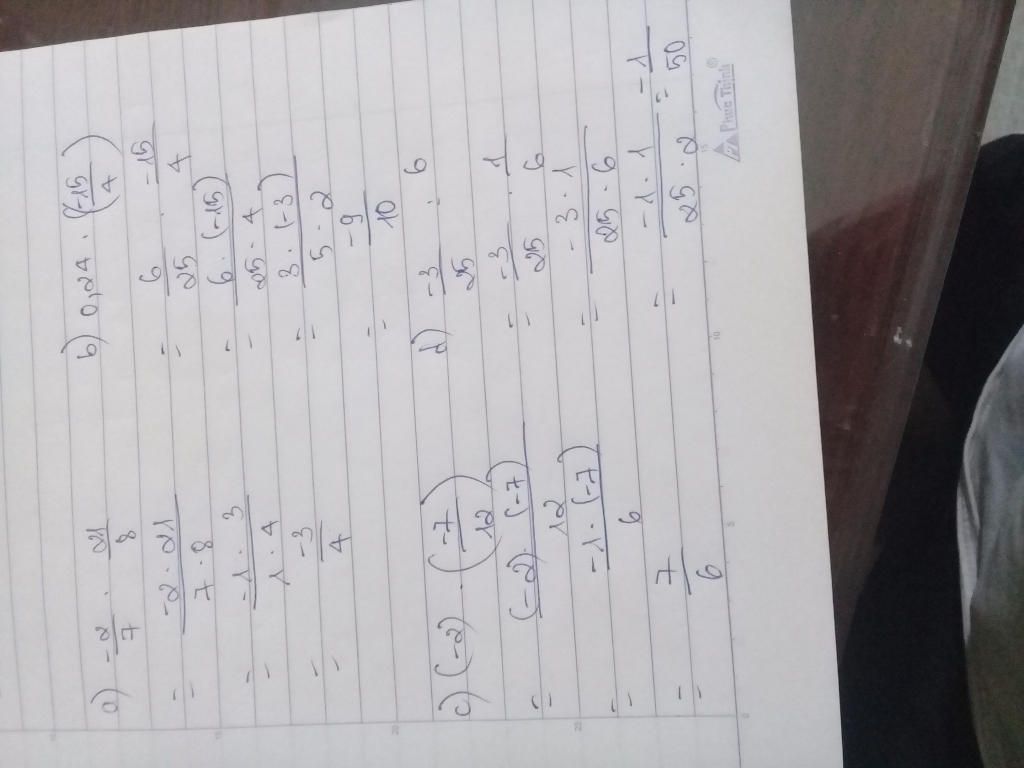 a) -2/7 . 21/8
= -2 . 21 / 7 . 8
= -1 . 3 / 1 . 4
= -3/4
b) 0,24 . (-15/4)
= 6/25 . -15/4
= 6 . (-15) / 25 . 4
= 3 . (-3) / 5 . 2
= -9/10
c) (-2) . (-7/12)
= (-2) . (-7) / 12
= -1 . (-7) / 6
= 7/6
d) -3/25 : 6
= -3/25 . 1/6
= -3 . 1 / 25 . 6
= -1 . 1 / 25 . 2 = -1/50
Phuc Thịnh®